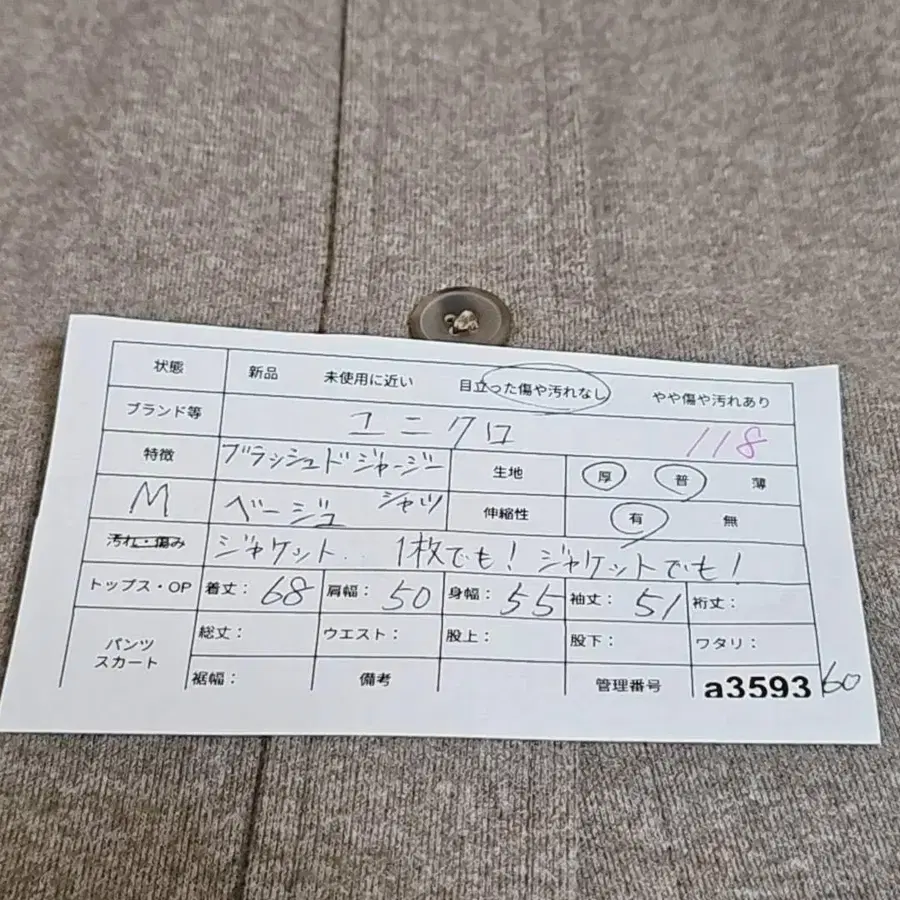 状態 新品 未使用に近い 目立った傷や汚れなし やや傷や汚れあり
ブランド等 ユニクロ 118
特徴 ブラッシュドジャージー 生地 厚 普 薄
M ベージュ シャツ 伸縮性 有 無
汚れ・傷み ジャケット.. 1枚でも! ジャケットでも!
トップス・OP 着丈: 68 肩幅: 50 身幅: 55 袖丈: 51 裄丈:
パンツ 総丈: ウエスト: 股上: 股下: ワタリ:
スカート
裾幅: 備考 管理番号 a3593 60